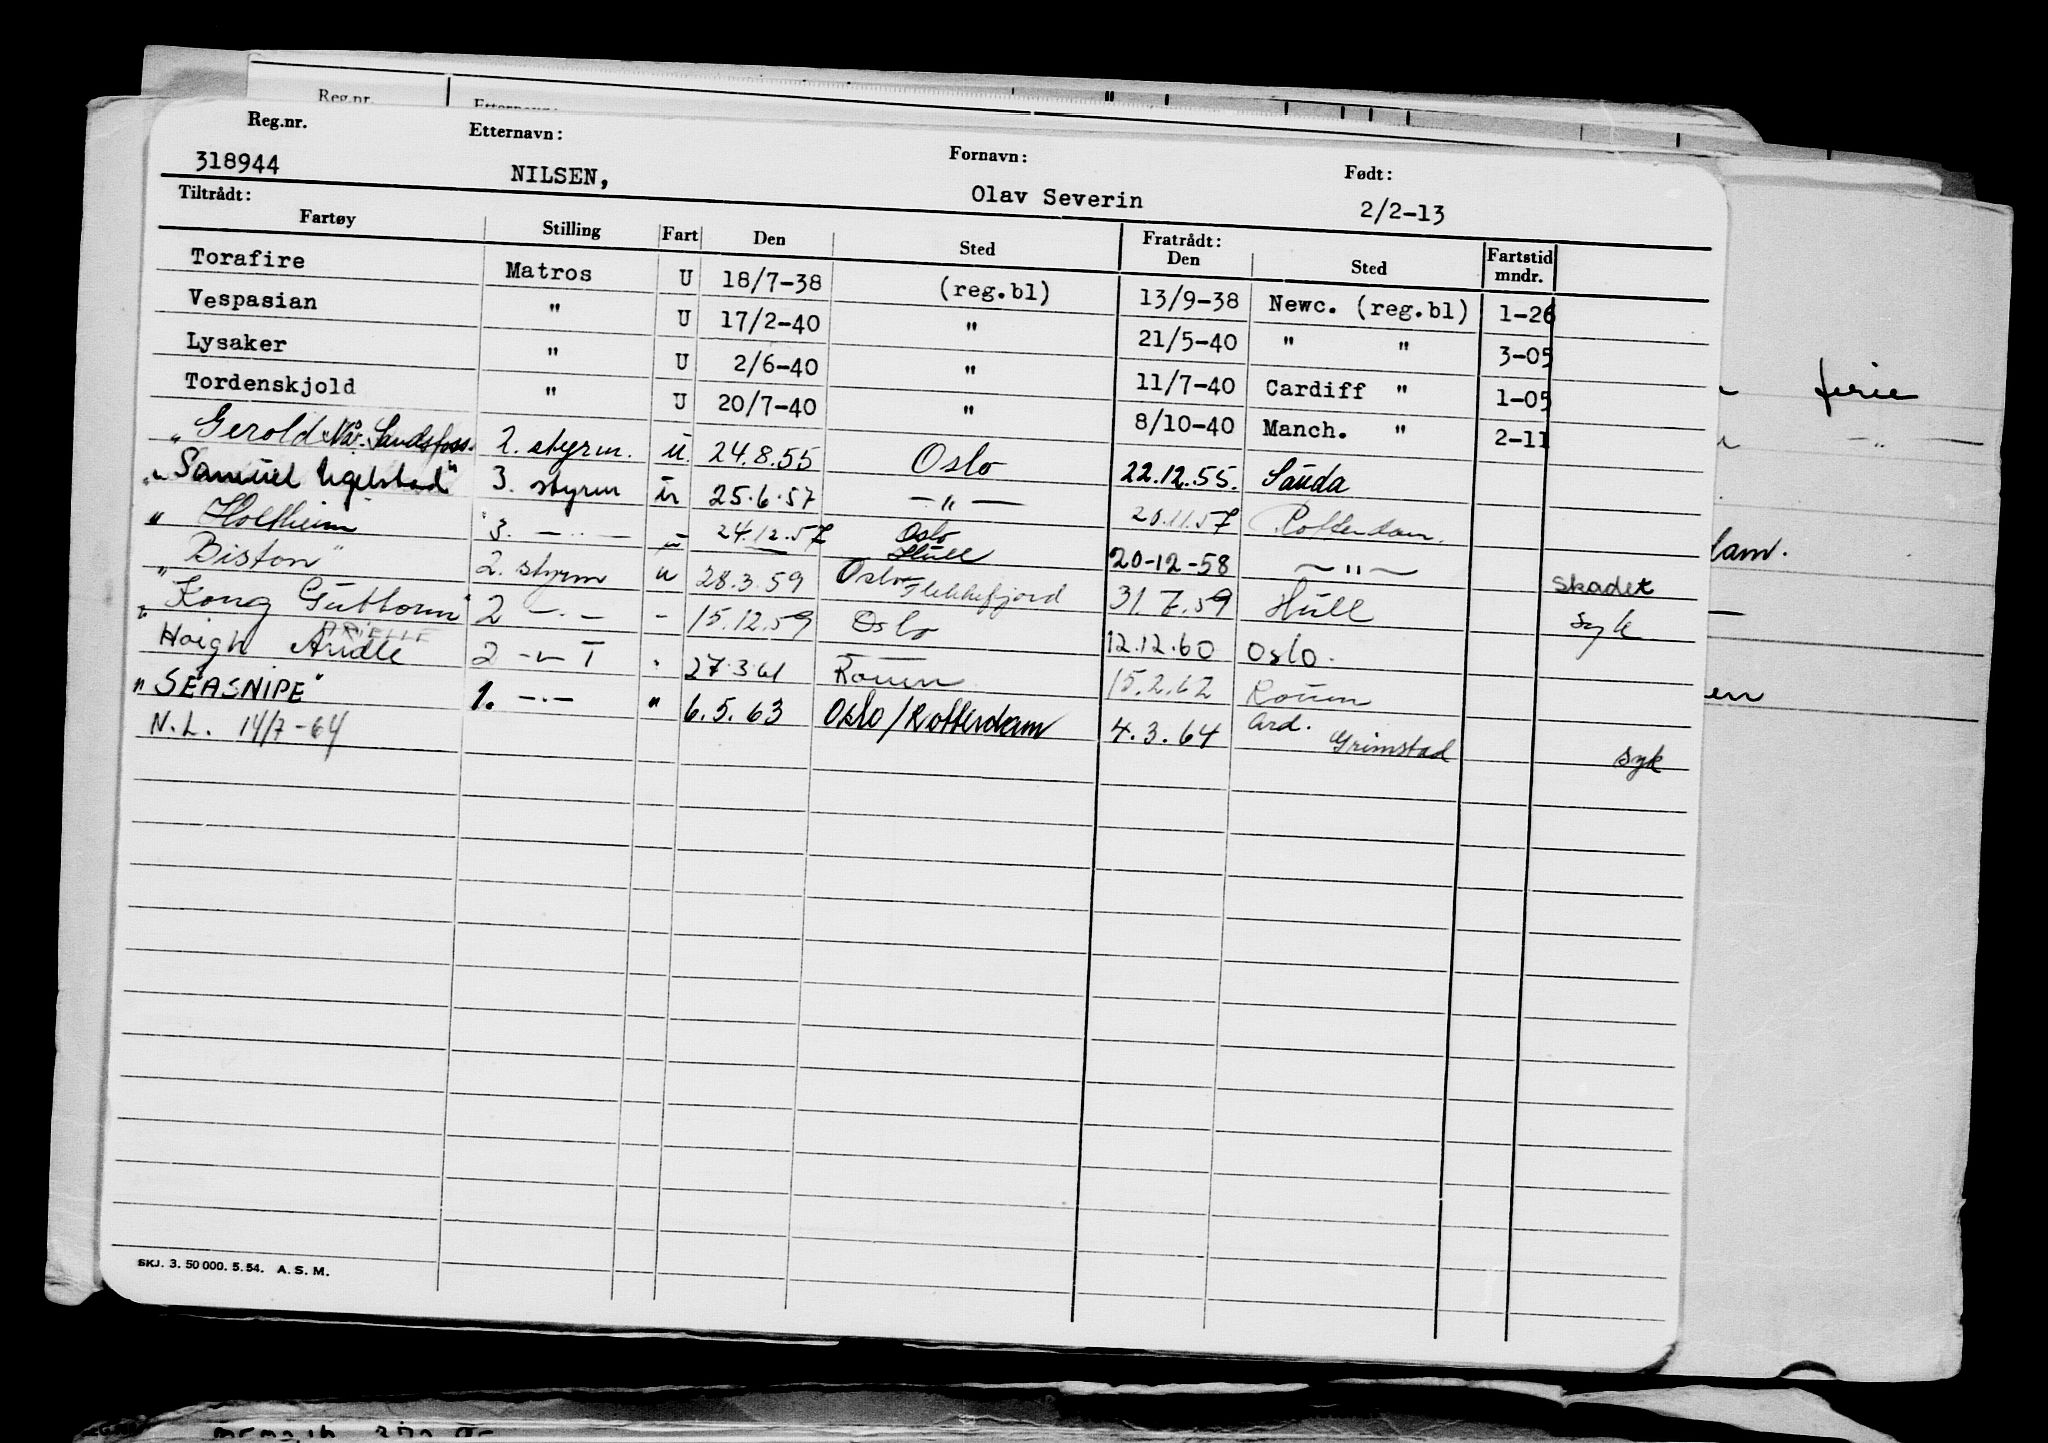 Reg.nr. Etternavn:
Reg.nr. Etternavn: Fornavn: Født:
318944 NILSEN, Olav Severin 2/2-13
Tiltrådt: Fratrådt:
Fartøy Stilling Fart Den Sted Den Sted Fartstid mndr.
Torafire Matros U 18/7-38 (reg.bl) 13/9-38 Newc. (reg.bl) 1-26
Vespasian " U 17/2-40 " 21/5-40 " " 3-05
Lysaker " U 2/6-40 " 11/7-40 Cardiff " 1-05
Tordenskjold " U 20/7-40 " 8/10-40 Manch. " 2-11
"Gerold Nå: Sandsfoss. 2. styrm. u. 24.8.55 Oslo 22.12.55. Sauda
"Samuel Ugelstad" 3. styrm u 25.6.57 -"- 20.11.57 Rotterdam.
" Holtheim 3. -"- u 24.12.57 Oslo Hull 20-12-58 -"- skadet
"Biston" 2. styrm u 28.3.59 Oslo Flekkefjord 31.7.59 Hull syk
"Kong Guttorm" 2 -.- - 15.12.59 Oslo 12.12.60 Oslo.
Haigh Aridle ARIELLE 2 -"- I " 27.3.61 Rouen 15.2.62 Rouen
"SEASNIPE" 1. -.- " 6.5.63 Oslo/Rotterdam 4.3.64 Ard. Grimstad syk
N.L. 14/7-64
SKJ. 3. 50 000. 5. 54. A. S. M.
ferie
-"-
dam.
en